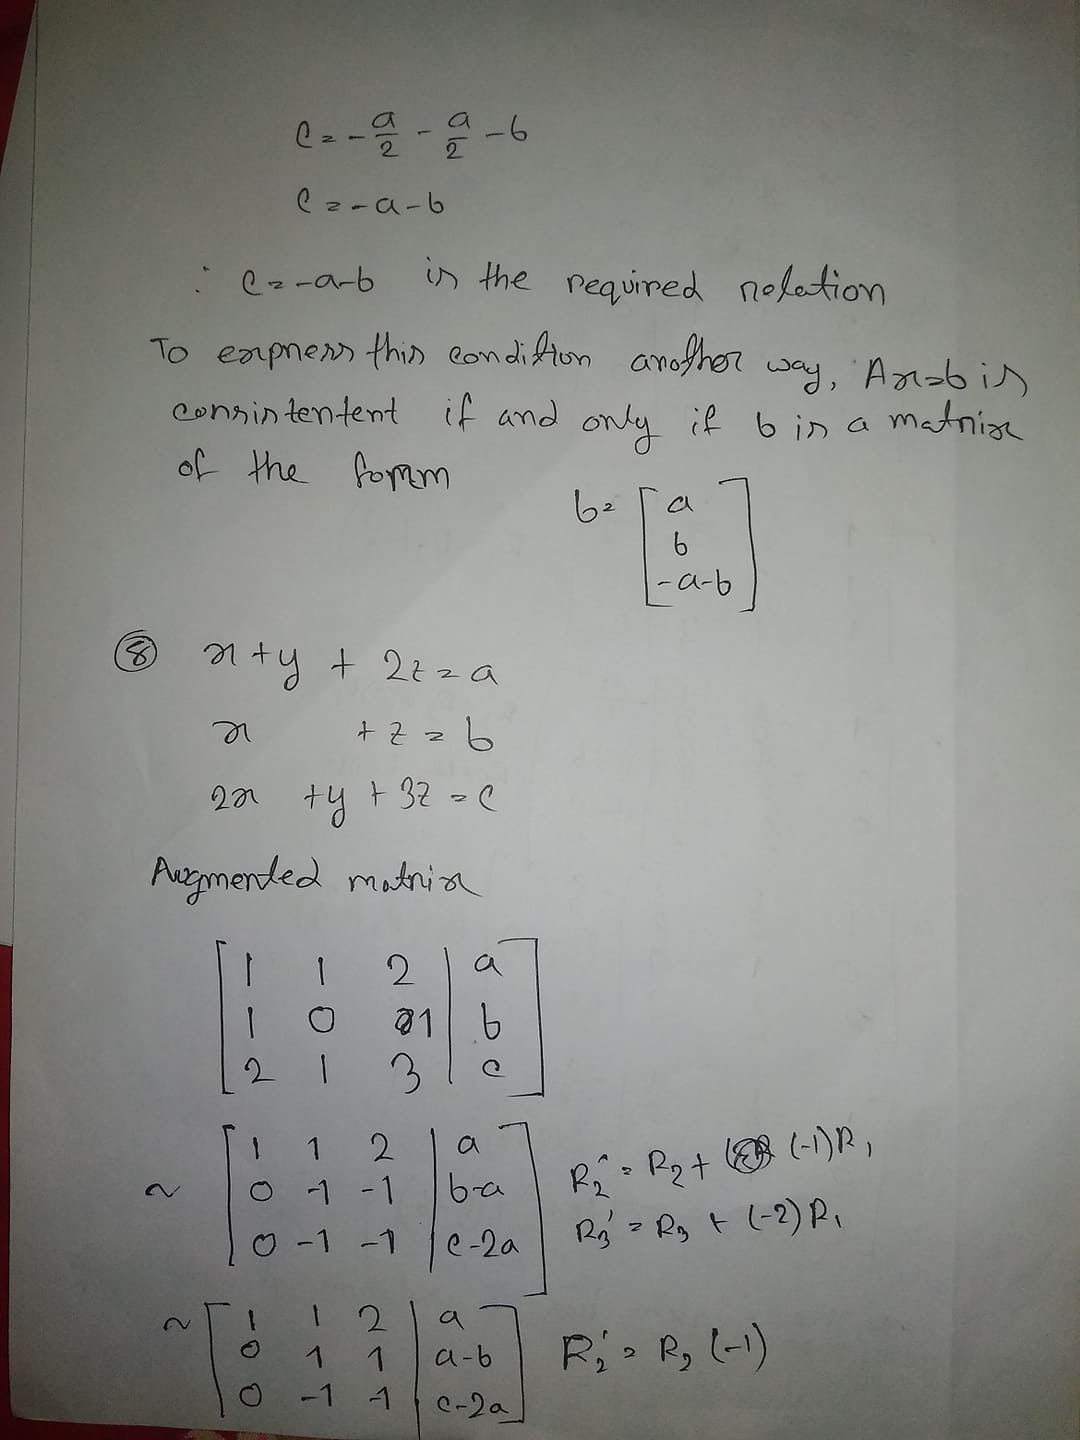 c = -a/2 - a/2 - b
c = -a-b
∴ c = -a-b is the required relation
To express this condition another way, Ax=b is
consintentent if and only if b is a matrix
of the form
b = [a
b
-a-b]
⑧ x + y + 2z = a
x + z = b
2x + y + 3z = c
Augmented matrix
[1 1 2 | a
1 0 1 | b
2 1 3 | c]
~ [1 1 2 | a
0 -1 -1 | b-a
0 -1 -1 | c-2a]
R₂' = R₂ + (-1)R₁
R₃' = R₃ + (-2)R₁
~ [1 1 2 | a
0 1 1 | a-b
0 -1 -1 | c-2a]
R₂' = R₂ (-1)